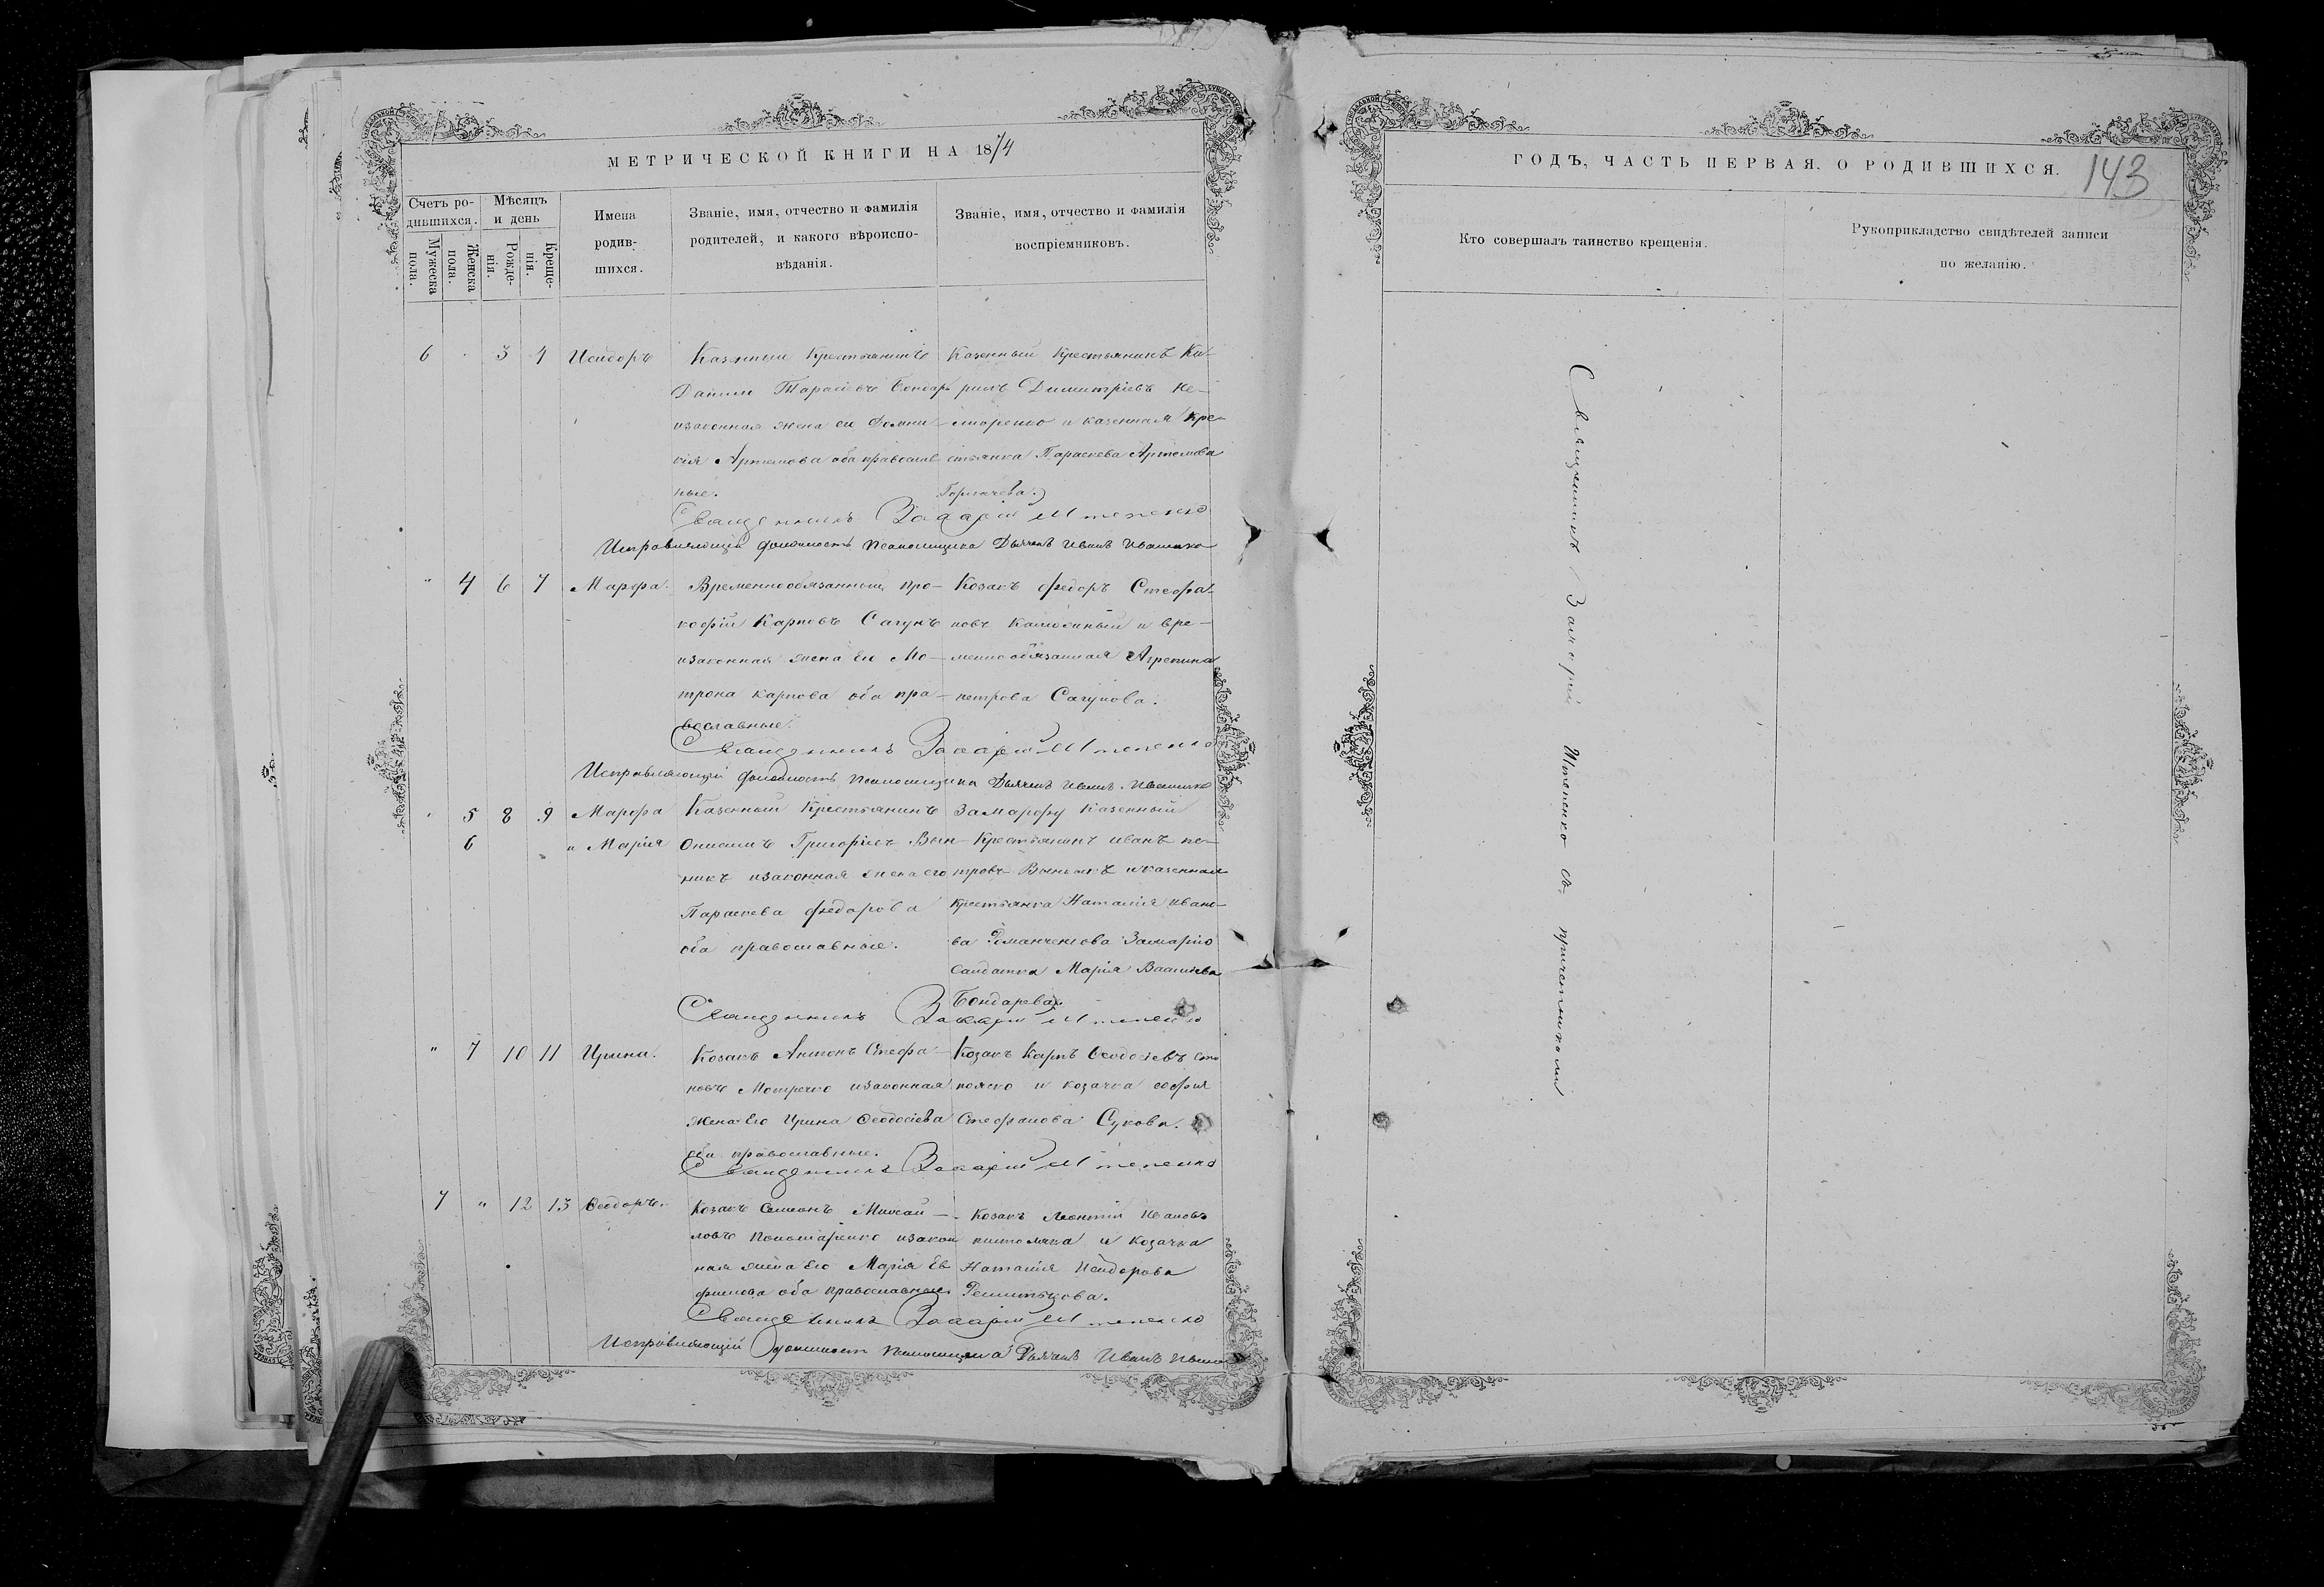 МЕТРИЧЕСКОЙ КНИГИ НА 1874
Счетъ ро-
дившихся.
Мужеска пола.
Женска пола.
Мѣсяцъ
и день
Рожде-
нія.
Креще-
нія.
Имена
родив-
шихся.
Званіе, имя, отчество и фамилія
родителей, и какого вѣроиспо-
вѣданія.
Званіе, имя, отчество и фамилія
воспріемниковъ.
6 3 4 Исидоръ
Казенный Крестьянинъ
Данiилъ Тарасіевъ Бондарь
изаконная жена ею Домни-
кія Артемова оба православ
ные.
Казенный Крестьянинъ Ки-
рилъ Димитріевъ Не-
и казенная кре-
стьянка Параскева Артемова
Горчачева.
Священникъ Захарій Штепенко
Исправляющій должность Псаломщика Дьячекъ Иванъ Ивашенко
" 4 6 7 Марфа.
Временнообязанный Про-
кофій Карповъ Сагунъ
изаконная жена Ею Мо-
трона Карпова оба пра-
вославные.
Козакъ Федоръ Стефа-
новъ и вре-
меннообязанная Агрепина
Петрова Сагунова.
Священникъ Захарій Штепенко
Исправляющій должность Псаломщика Дьячекъ Иванъ Ивашенко
5 8 9 Марфа
6 " Марія
Казенный Крестьянинъ
Онисимъ Григоріевъ Вын-
никъ изаконная жена его
Параскева Федорова
оба православные.
За Марфу Казенный
Крестьянинъ Иванъ Пе-
тровъ и казенная
крестьянка Наталія Ивано-
ва Романченкова За Марію
Салдатка Марія Василіева
Бондарева.
Священникъ Захарій Штепенко
" 7 10 11 Ирина.
Козакъ Антонъ Стефа-
новъ изаконная
жена Его Ирина Феодосіева
оба православные.
Козакъ Карпъ Феодосіевъ
и козачка Софія
Стефанова Сукова.
Священникъ Захарій Штепенко
7 " 12 13 Феодоръ.
Козакъ Симеонъ Михай-
ловъ Пономаренко изакон
ная жена Его Марія Ев
фимова оба православные
Козакъ Леонтій Ивановъ
и Козачка
Наталія Исидорова
Решетькова.
Священникъ Захарій Штепенко
Исправляющій должность Псаломщика Дьячекъ Иванъ
ГОДЪ, ЧАСТЬ ПЕРВАЯ, О РОДИВШИХСЯ.
143
Кто совершалъ таинство крещенія.
Рукоприкладство свидѣтелей записи
по желанію.
Священникъ Захарій Штепенко съ причетниками